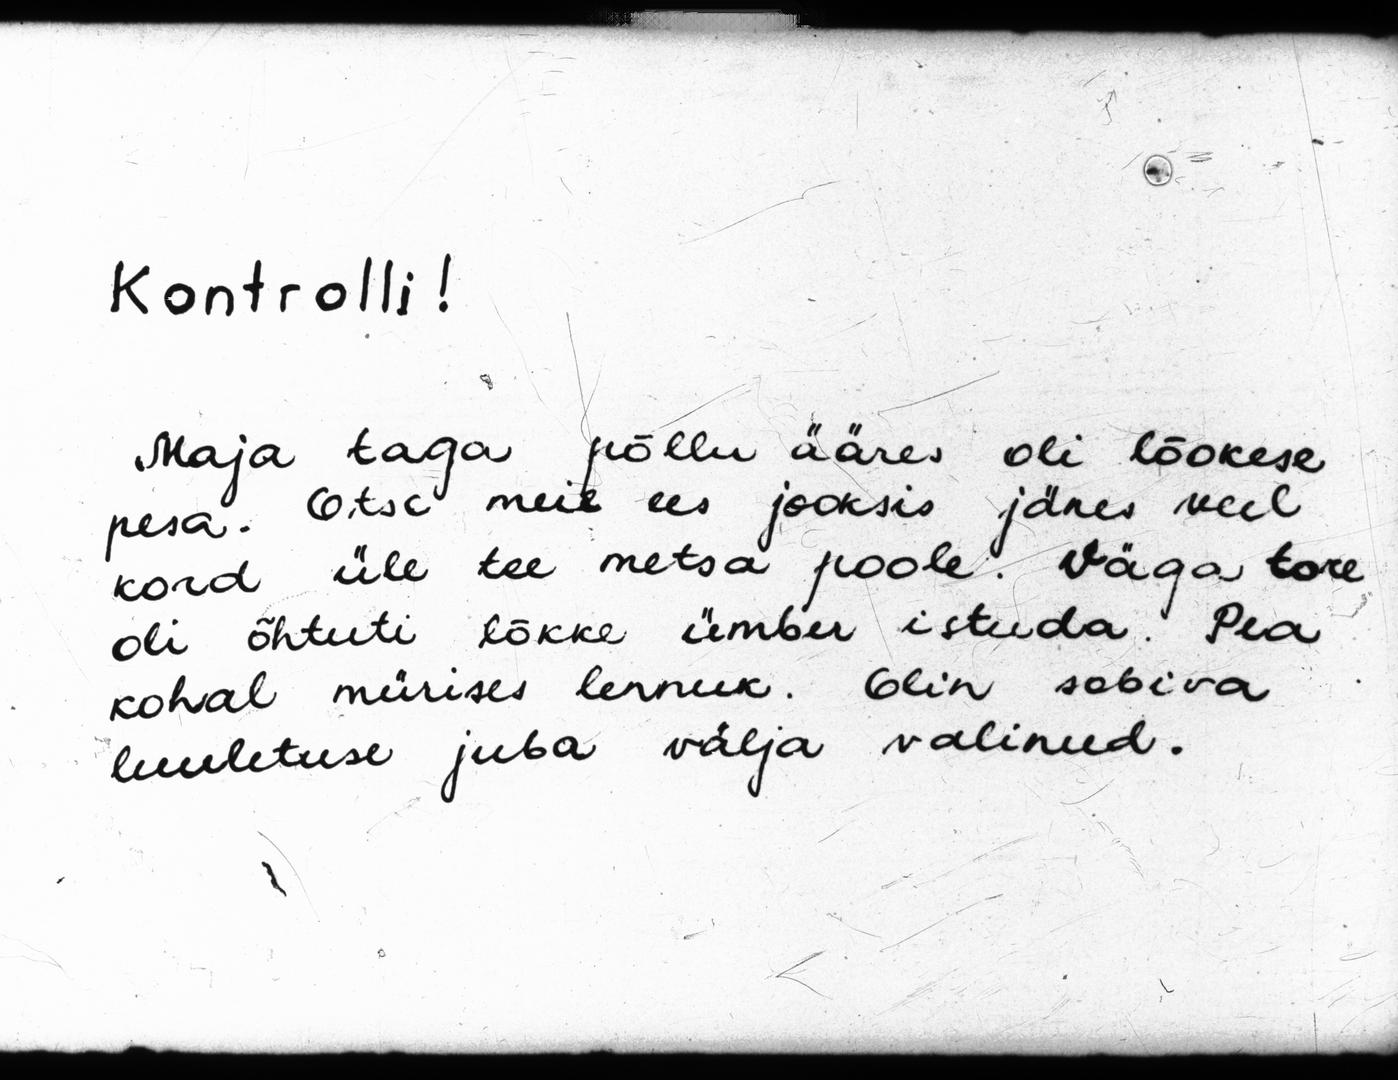 Kontrolli!
Maja taga põllu ääres oli lõokese
pesa. Otse meie ees jooksis jänes veel
kord üle tee metsa poole. Väga tore
oli õhtuti lõkke ümber istuda. Pea
kohal mürises lennuk. Olin sobiva
luuletuse juba välja valinud.